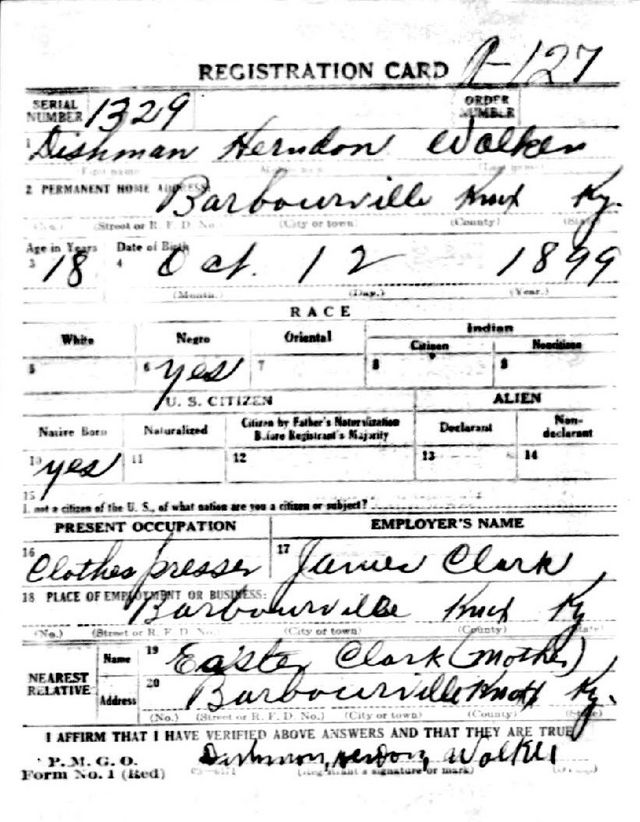 REGISTRATION CARD A-127
SERIAL NUMBER 1329 ORDER NUMBER
1 Dishman Herndon Walker
First name Last name
2 PERMANENT HOME ADDRESS:
Barbourville Knox Ky.
(No.) (Street or R. F. D. No.) (City or town) (County) (State)
Age in Years Date of Birth
3 18 4 Oct. 12 1899
(Month.) (Day.) (Year.)
RACE
White Negro Oriental Indian
Citizen Noncitizen
5 6 yes 7 8 9
U. S. CITIZEN ALIEN
Native Born Naturalized Citizen by Father's Naturalization Before Registrant's Majority Declarant Non-declarant
10 yes 11 12 13 14
15
If not a citizen of the U. S., of what nation are you a citizen or subject?
PRESENT OCCUPATION EMPLOYER'S NAME
16 Clothes presser 17 James Clark
18 PLACE OF EMPLOYMENT OR BUSINESS:
Barbourville Knox Ky
(No.) (Street or R. F. D. No.) (City or town) (County) (State)
NEAREST RELATIVE
Name 19 Easter Clark (mother)
Address 20 Barbourville Knox Ky.
(No.) (Street or R. F. D. No.) (City or town) (County) (State)
I AFFIRM THAT I HAVE VERIFIED ABOVE ANSWERS AND THAT THEY ARE TRUE
P. M. G. O.
Form No. 1 (Red) Dishmon, Herdon, Walker
(Registrant's signature or mark)